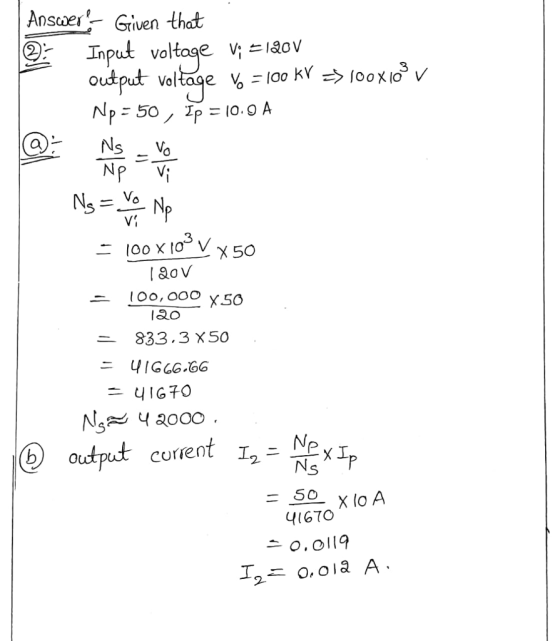 Answer:- Given that
②:- Input voltage Vi = 120V
output voltage Vo = 100 KV ⇒ 100×10³ V
Np = 50, Ip = 10.0 A
ⓐ:- Ns/Np = Vo/Vi
Ns = Vo/Vi Np
= 100 × 10³ V / 120V × 50
= 100,000 / 120 × 50
= 833.3 × 50
= 41666.66
= 41670
Ns ≈ 42000.
ⓑ output current I₂ = Np/Ns × Ip
= 50/41670 × 10 A
= 0.0119
I₂ = 0.012 A.